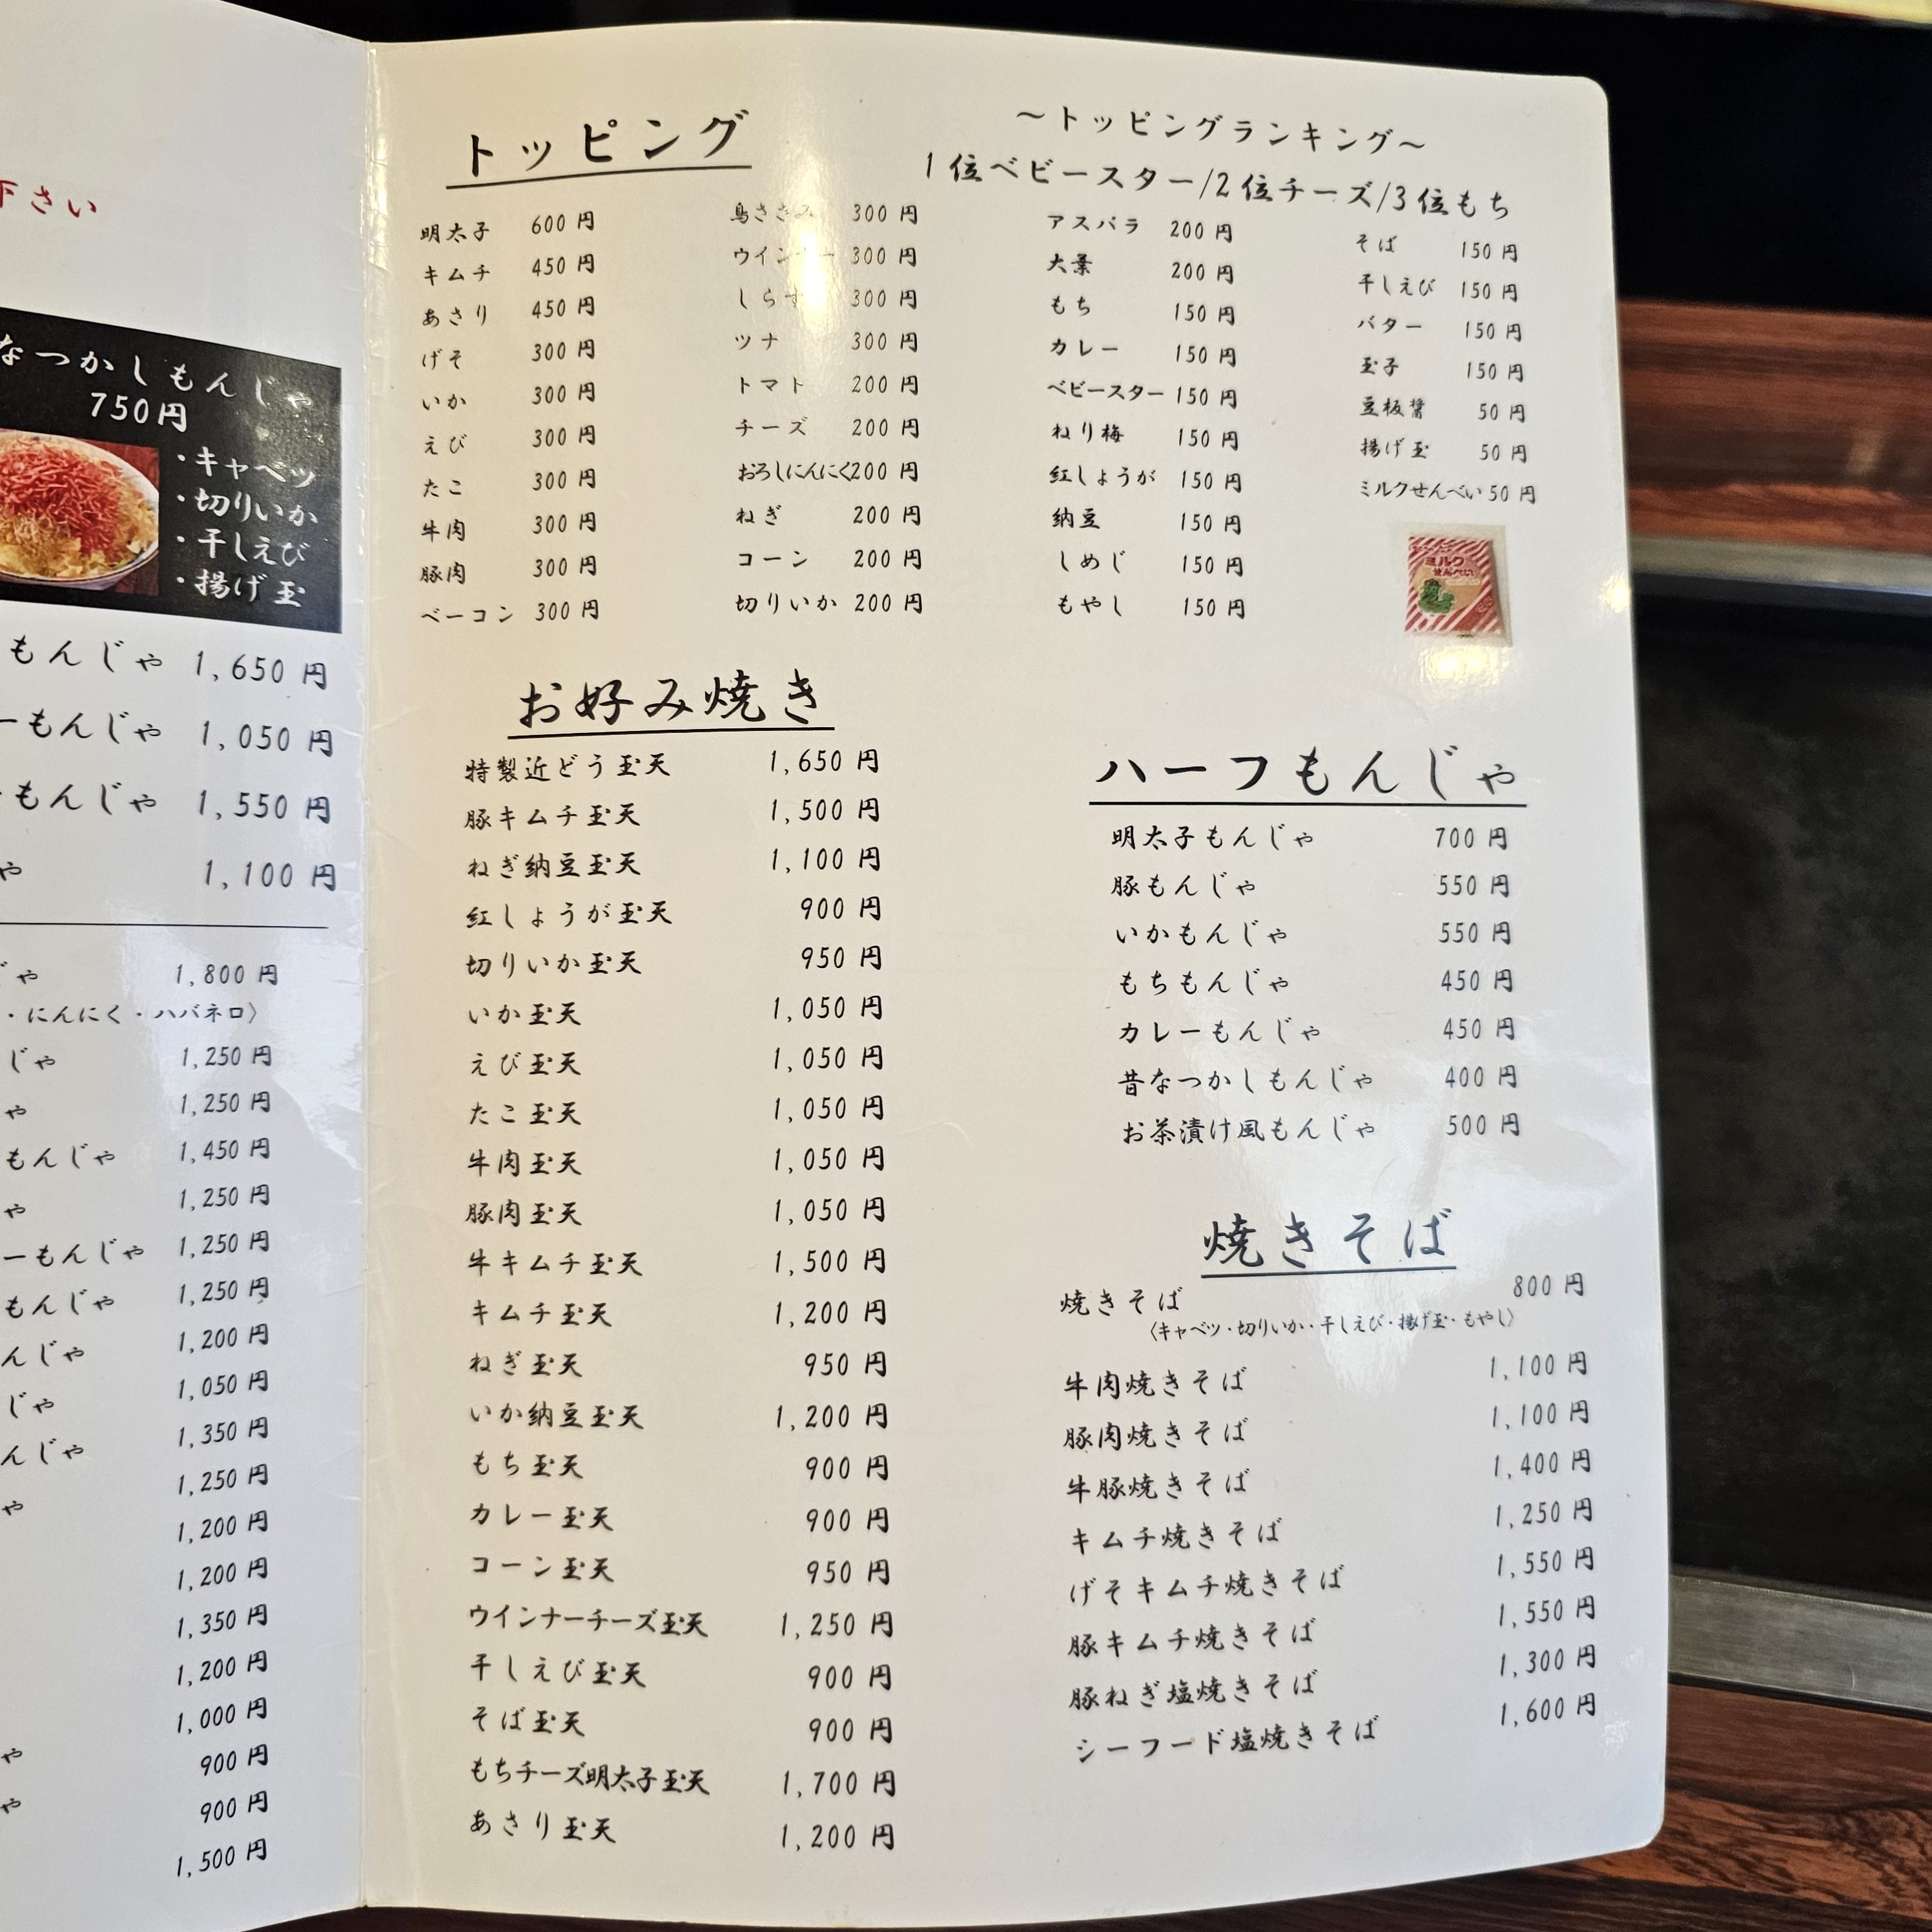 下さい
なつかしもんじゃ
750円
・キャベツ
・切りいか
・干しえび
・揚げ玉
もんじゃ 1,650円
ーもんじゃ 1,050円
もんじゃ 1,550円
や 1,100円
じゃ 1,800円
・にんにく・ハバネロ〉
じゃ 1,250円
ゃ 1,250円
もんじゃ 1,450円
ゃ 1,250円
ーもんじゃ 1,250円
もんじゃ 1,250円
んじゃ 1,200円
じゃ 1,050円
んじゃ 1,350円
ゃ 1,250円
1,200円
1,200円
1,350円
1,200円
1,000円
ゃ 900円
ゃ 900円
1,500円
トッピング
明太子 600円
キムチ 450円
あさり 450円
げそ 300円
いか 300円
えび 300円
たこ 300円
牛肉 300円
豚肉 300円
ベーコン 300円
鳥ささみ 300円
ウインナー 300円
しらす 300円
ツナ 300円
トマト 200円
チーズ 200円
おろしにんにく200円
ねぎ 200円
コーン 200円
切りいか 200円
〜トッピングランキング〜
1位ベビースター/2位チーズ/3位もち
アスパラ 200円
大葉 200円
もち 150円
カレー 150円
ベビースター 150円
ねり梅 150円
紅しょうが 150円
納豆 150円
しめじ 150円
もやし 150円
そば 150円
干しえび 150円
バター 150円
玉子 150円
豆板醤 50円
揚げ玉 50円
ミルクせんべい 50円
ミルク
せんべい
お好み焼き
特製近どう玉天 1,650円
豚キムチ玉天 1,500円
ねぎ納豆玉天 1,100円
紅しょうが玉天 900円
切りいか玉天 950円
いか玉天 1,050円
えび玉天 1,050円
たこ玉天 1,050円
牛肉玉天 1,050円
豚肉玉天 1,050円
牛キムチ玉天 1,500円
キムチ玉天 1,200円
ねぎ玉天 950円
いか納豆玉天 1,200円
もち玉天 900円
カレー玉天 900円
コーン玉天 950円
ウインナーチーズ玉天 1,250円
干しえび玉天 900円
そば玉天 900円
もちチーズ明太子玉天 1,700円
あさり玉天 1,200円
ハーフもんじゃ
明太子もんじゃ 700円
豚もんじゃ 550円
いかもんじゃ 550円
もちもんじゃ 450円
カレーもんじゃ 450円
昔なつかしもんじゃ 400円
お茶漬け風もんじゃ 500円
焼きそば
焼きそば 800円
〈キャベツ・切りいか・干しえび・揚げ玉・もやし〉
牛肉焼きそば 1,100円
豚肉焼きそば 1,100円
牛豚焼きそば 1,400円
キムチ焼きそば 1,250円
げそキムチ焼きそば 1,550円
豚キムチ焼きそば 1,550円
豚ねぎ塩焼きそば 1,300円
シーフード塩焼きそば 1,600円